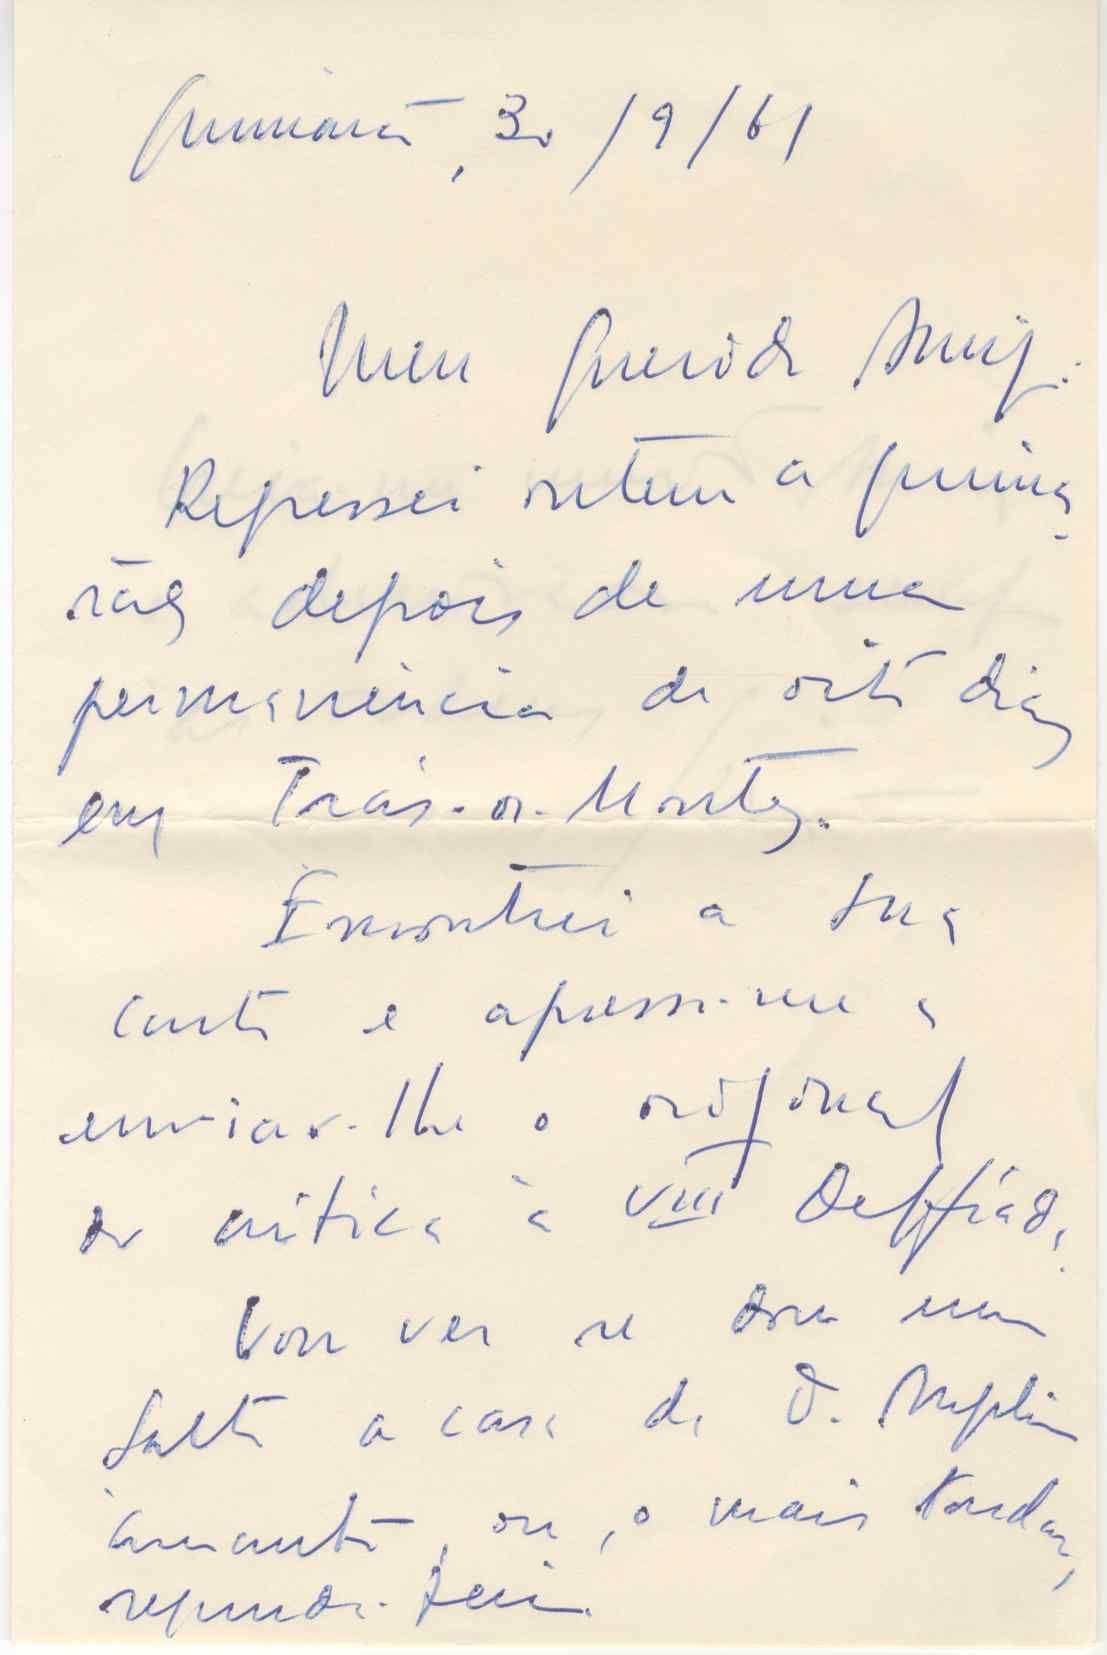 Guimarães, 30/9/61
Meu Querido Amigo:
Regressei ontem a Guima-
rães depois de uma
permanência de oito dias
em Trás-os-Montes.
Encontrei a sua
carta e apresso-me a
enviar-lhe o original
da crítica à VIII Delfíada.
Vou ver se dou um
salto a casa de D.
amanhã, ou, o mais tardar,
segunda-feira.